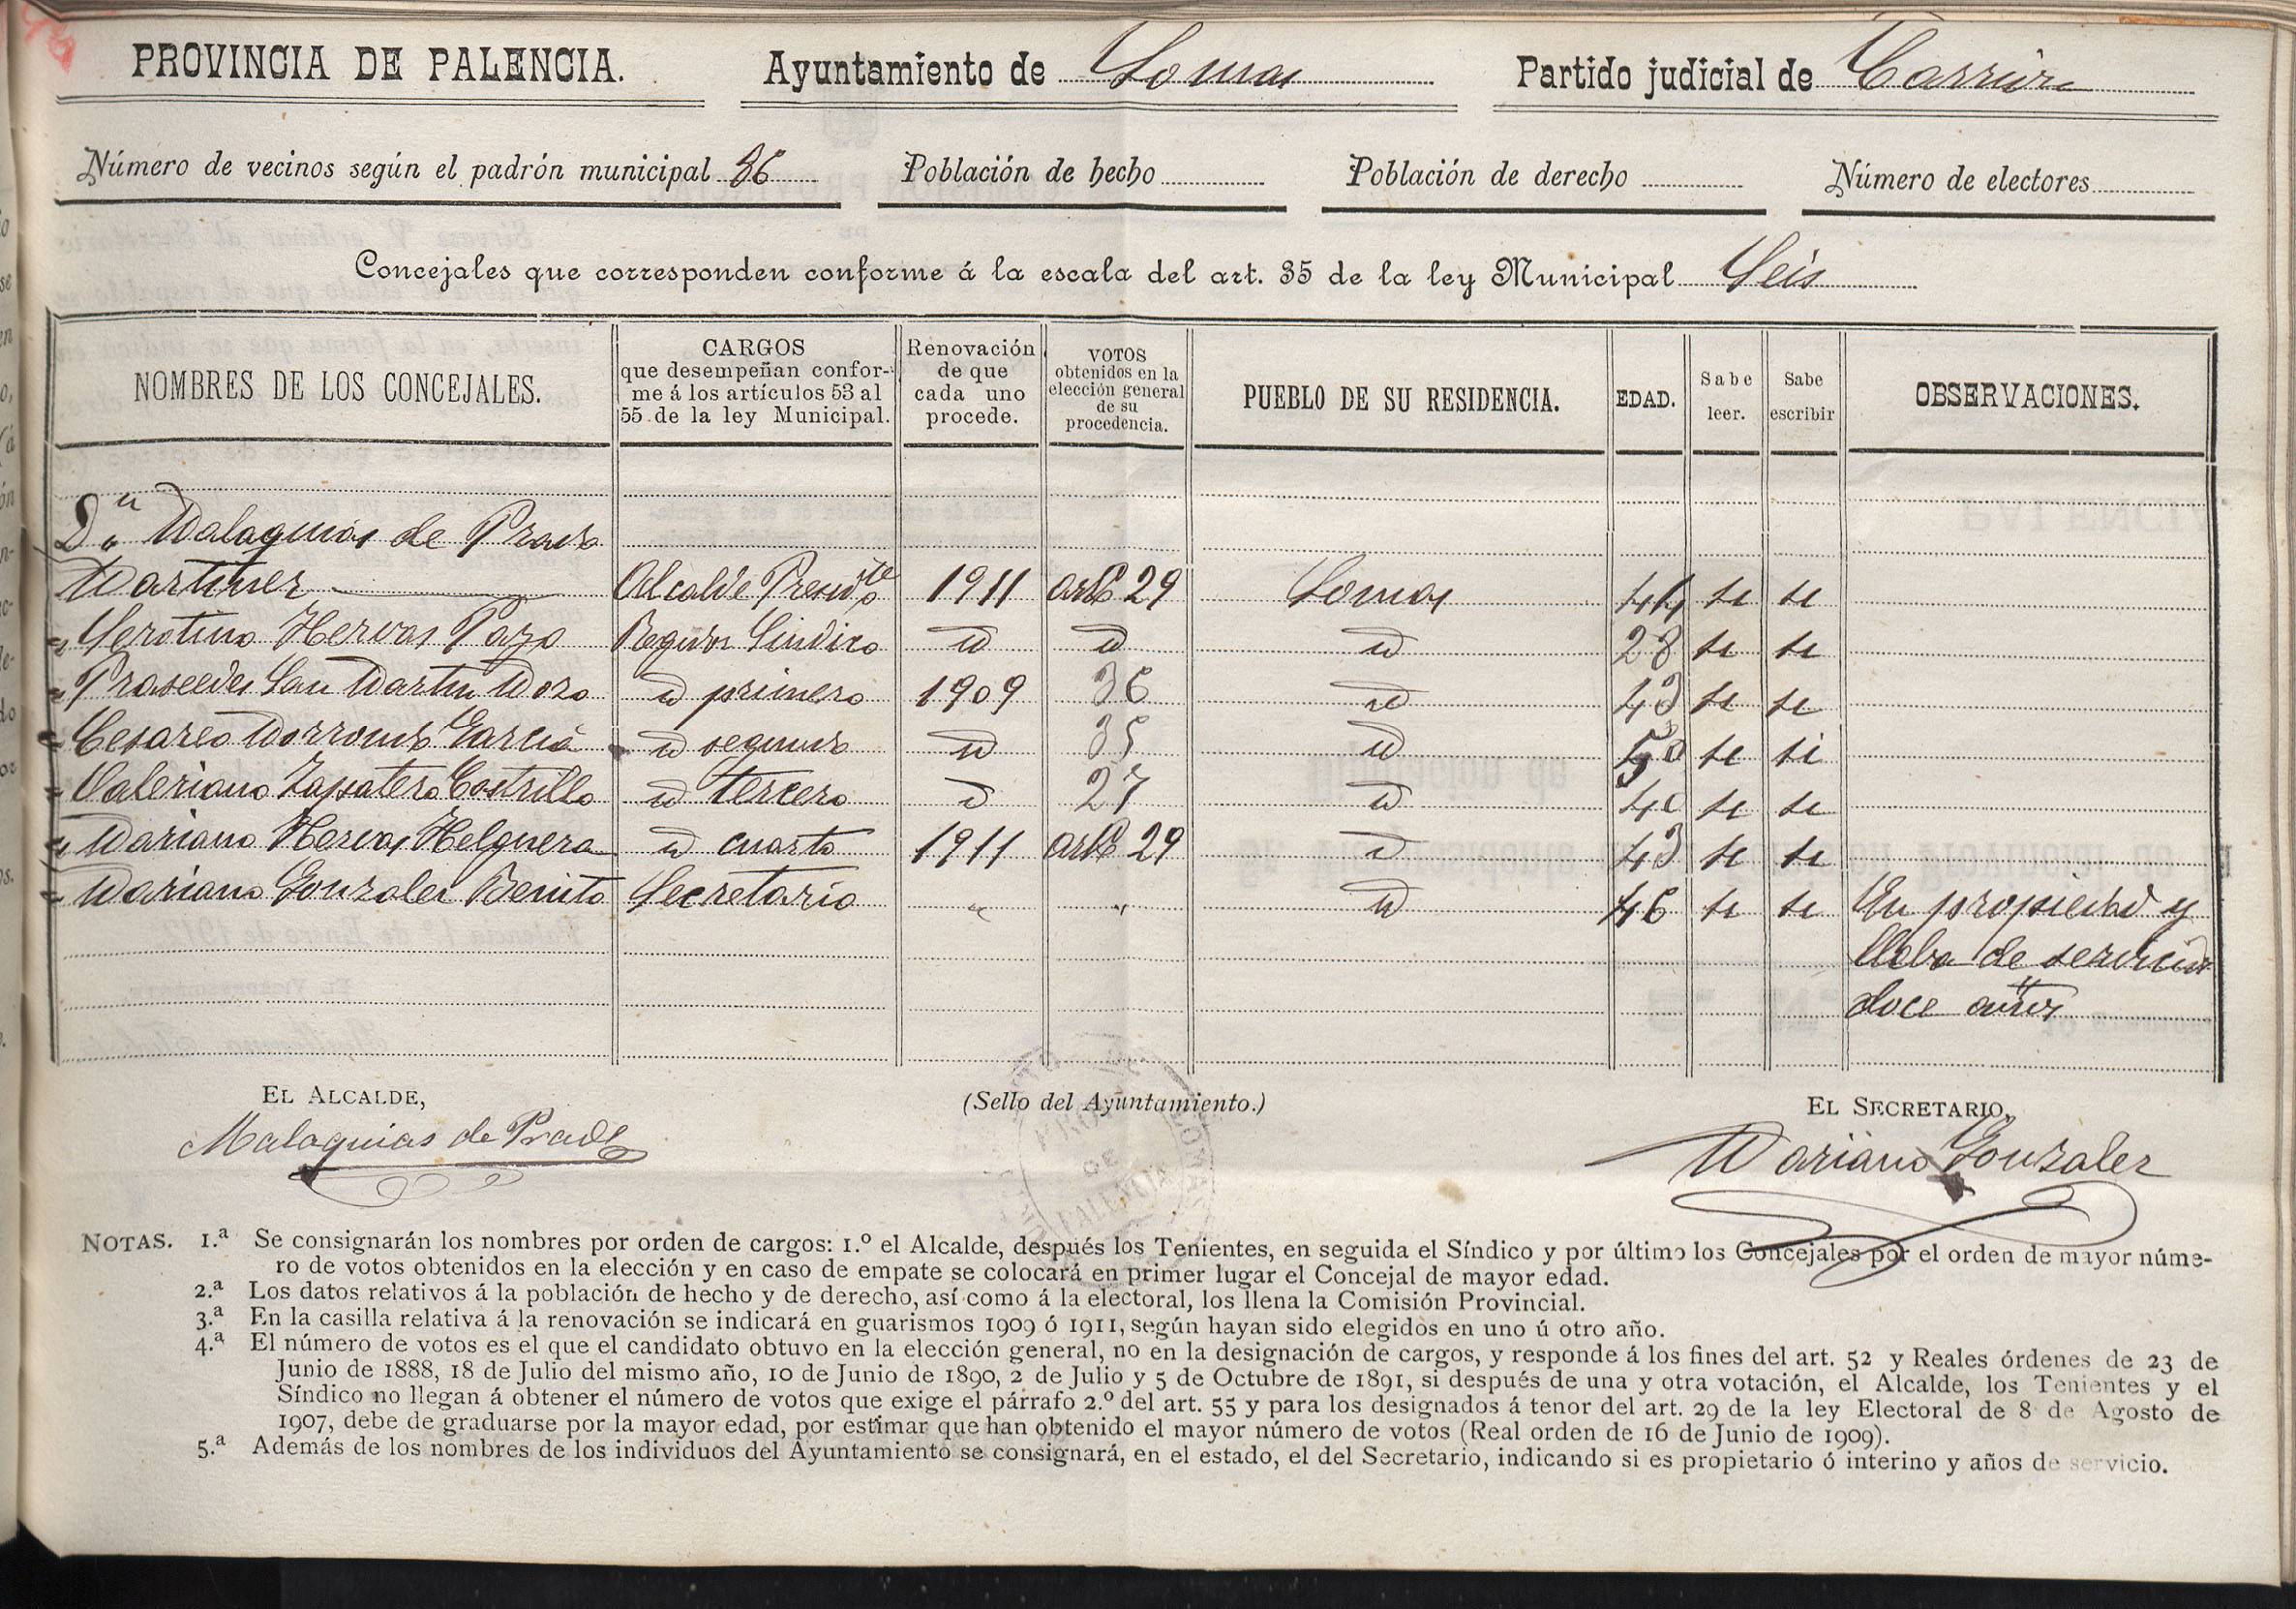 PROVINCIA DE PALENCIA. Ayuntamiento de Lomas Partido judicial de Carrión
Número de vecinos según el padrón municipal 86 Población de hecho Población de derecho Número de electores
Concejales que corresponden conforme á la escala del art. 35 de la ley Municipal Seis
NOMBRES DE LOS CONCEJALES. CARGOS que desempeñan conforme á los artículos 53 al 55 de la ley Municipal. Renovación de que cada uno procede. VOTOS obtenidos en la elección general de su procedencia. PUEBLO DE SU RESIDENCIA. EDAD. Sabe leer. Sabe escribir OBSERVACIONES.
Dn Malaquias de Prado
Martinez Alcalde Presidte 1911 artº 29 Lomas 44 si si
" Serotino Hervas Pozo Regidor Sindico id id id 28 si si
" Praxedes San Martin Moro id primero 1909 36 id 43 si si
" Cesareo Morrondo Garcia id segundo id 35 id 50 si si
" Valeriano Zapatero Castrillo id tercero id 27 id 40 si si
" Mariano Hervas Helguera id cuarto 1911 artº 29 id 43 si si
" Mariano Gonzalez Benito Secretario " " id 46 si si En propiedad y
lleba de servicio
doce años
EL ALCALDE, (Sello del Ayuntamiento.) EL SECRETARIO,
Malaquias de Prado Mariano Gonzalez
PROV.
DE
PALENCIA
NOTAS. 1.ª Se consignarán los nombres por orden de cargos: 1.º el Alcalde, después los Tenientes, en seguida el Síndico y por último los Concejales por el orden de mayor núme-
ro de votos obtenidos en la elección y en caso de empate se colocará en primer lugar el Concejal de mayor edad.
2.ª Los datos relativos á la población de hecho y de derecho, así como á la electoral, los llena la Comisión Provincial.
3.ª En la casilla relativa á la renovación se indicará en guarismos 1909 ó 1911, según hayan sido elegidos en uno ú otro año.
4.ª El número de votos es el que el candidato obtuvo en la elección general, no en la designación de cargos, y responde á los fines del art. 52 y Reales órdenes de 23 de
Junio de 1888, 18 de Julio del mismo año, 10 de Junio de 1890, 2 de Julio y 5 de Octubre de 1891, si después de una y otra votación, el Alcalde, los Tenientes y el
Síndico no llegan á obtener el número de votos que exige el párrafo 2.º del art. 55 y para los designados á tenor del art. 29 de la ley Electoral de 8 de Agosto de
1907, debe de graduarse por la mayor edad, por estimar que han obtenido el mayor número de votos (Real orden de 16 de Junio de 1909).
5.ª Además de los nombres de los individuos del Ayuntamiento se consignará, en el estado, el del Secretario, indicando si es propietario ó interino y años de servicio.